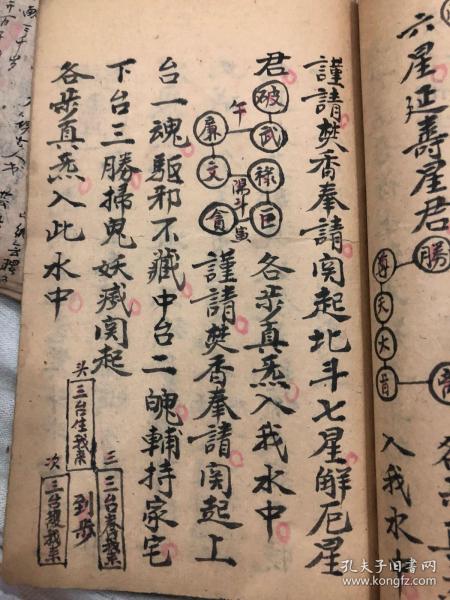 六星延壽星君
勝
尊
天
大
入我水中
謹請焚香奉請関起北斗七星解厄星
君
破
武
廉
午
文
祿
貪
巨
斗
寅
各步真炁入我水中
謹請焚香奉請関起上
台一魂驅邪不藏中台二魄輔持家宅
下台三勝掃鬼妖痷関起
各步真炁入此水中
头
三台生我來
三
三台養我來
次
三台護我來
到步
孔夫子旧书网
www.kongfz.com